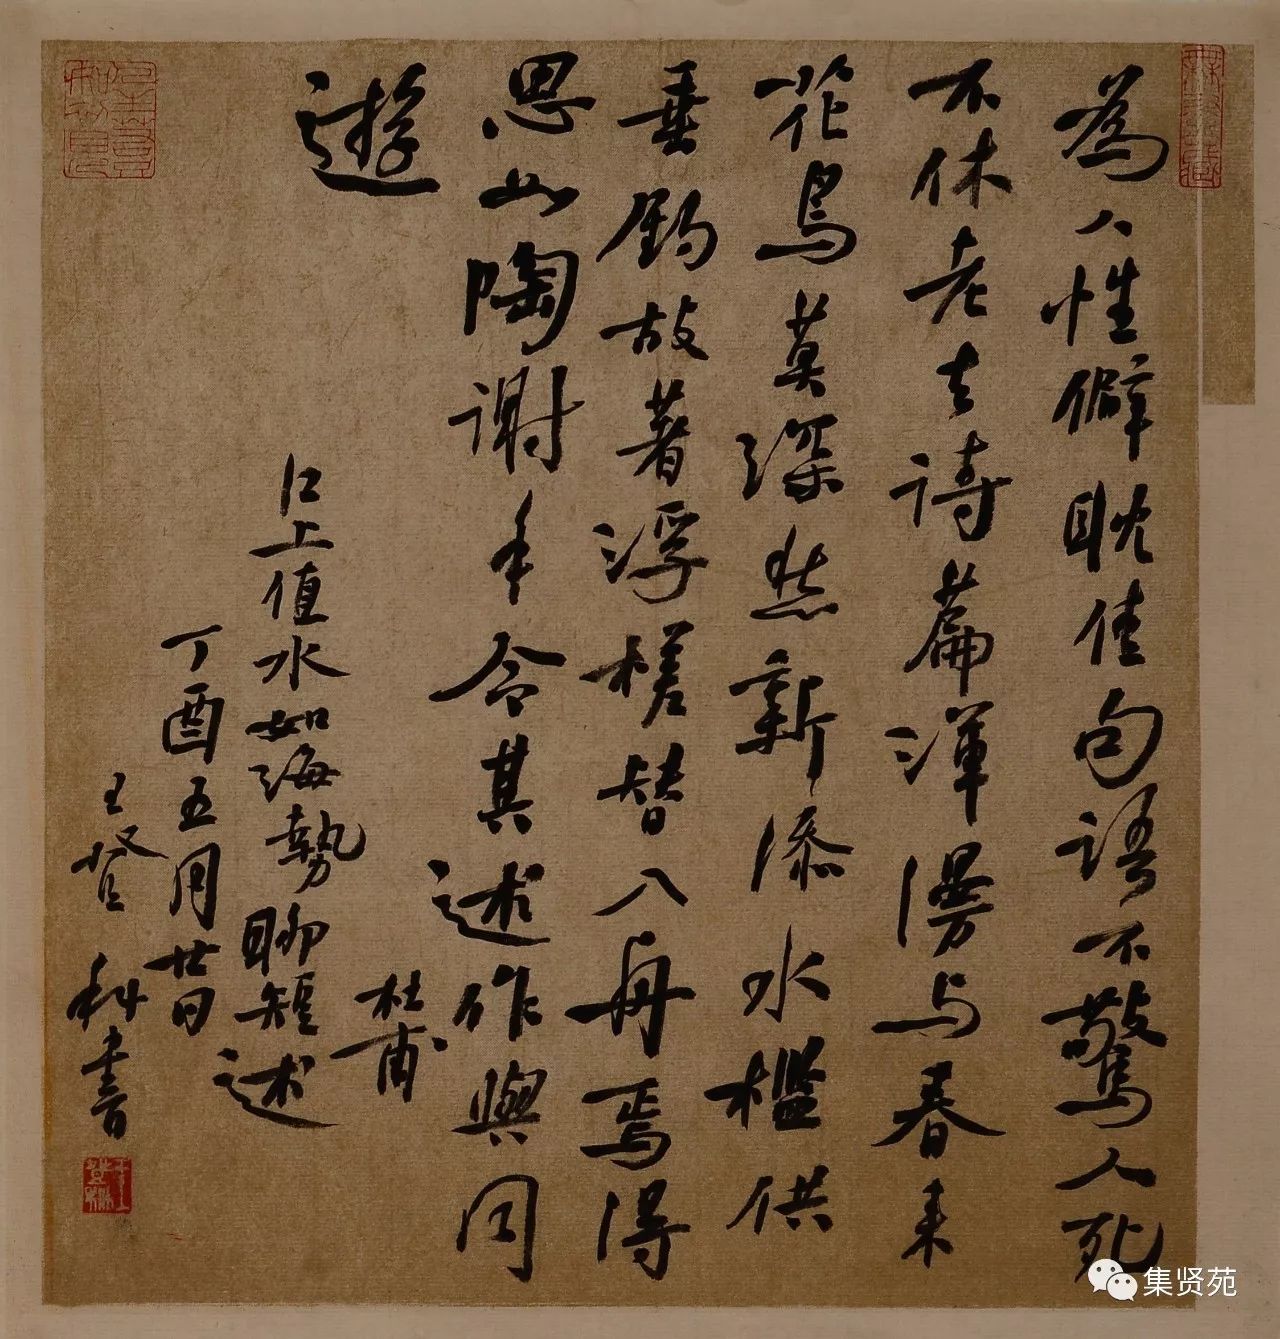 為人性僻耽佳句語不驚人死
不休老去詩篇渾漫与春来
花鳥莫深愁新添水檻供
垂釣故著浮槎替入舟焉得
思如陶謝手令其述作與同
遊
杜甫
江上值水如海勢聊短述
丁酉五月廿日
王登科書
集贤苑